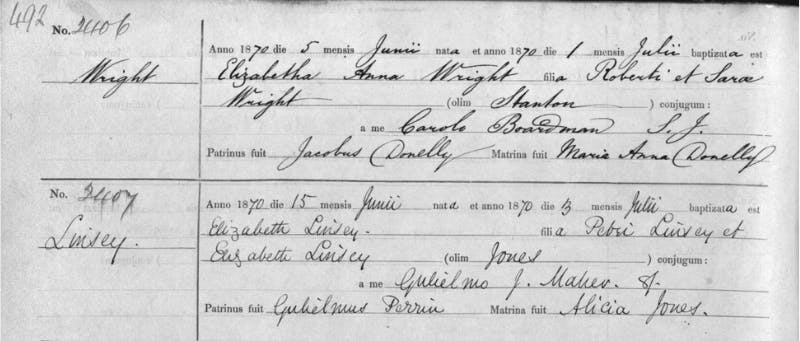 492
No. 2406
Anno 1870 die 5 mensis Junii nata et anno 1870 die 1 mensis Julii baptizata est
Wright
Elizabetha Anna Wright filia Roberti et Saræ
Wright (olim Stanton) conjugum:
a me Carolo Boardman S. J.
Patrinus fuit Jacobus Donelly Matrina fuit Maria Anna Donelly
No. 2407
Anno 1870 die 15 mensis Junii nata et anno 1870 die 3 mensis Julii baptizata est
Linsey.
Elizabeth Linsey. filia Petri Linsey et
Elizabeth Linsey (olim Jones) conjugum:
a me Gulielmo J. Maher.
Patrinus fuit Gulielmus Perrin Matrina fuit Alicia Jones.